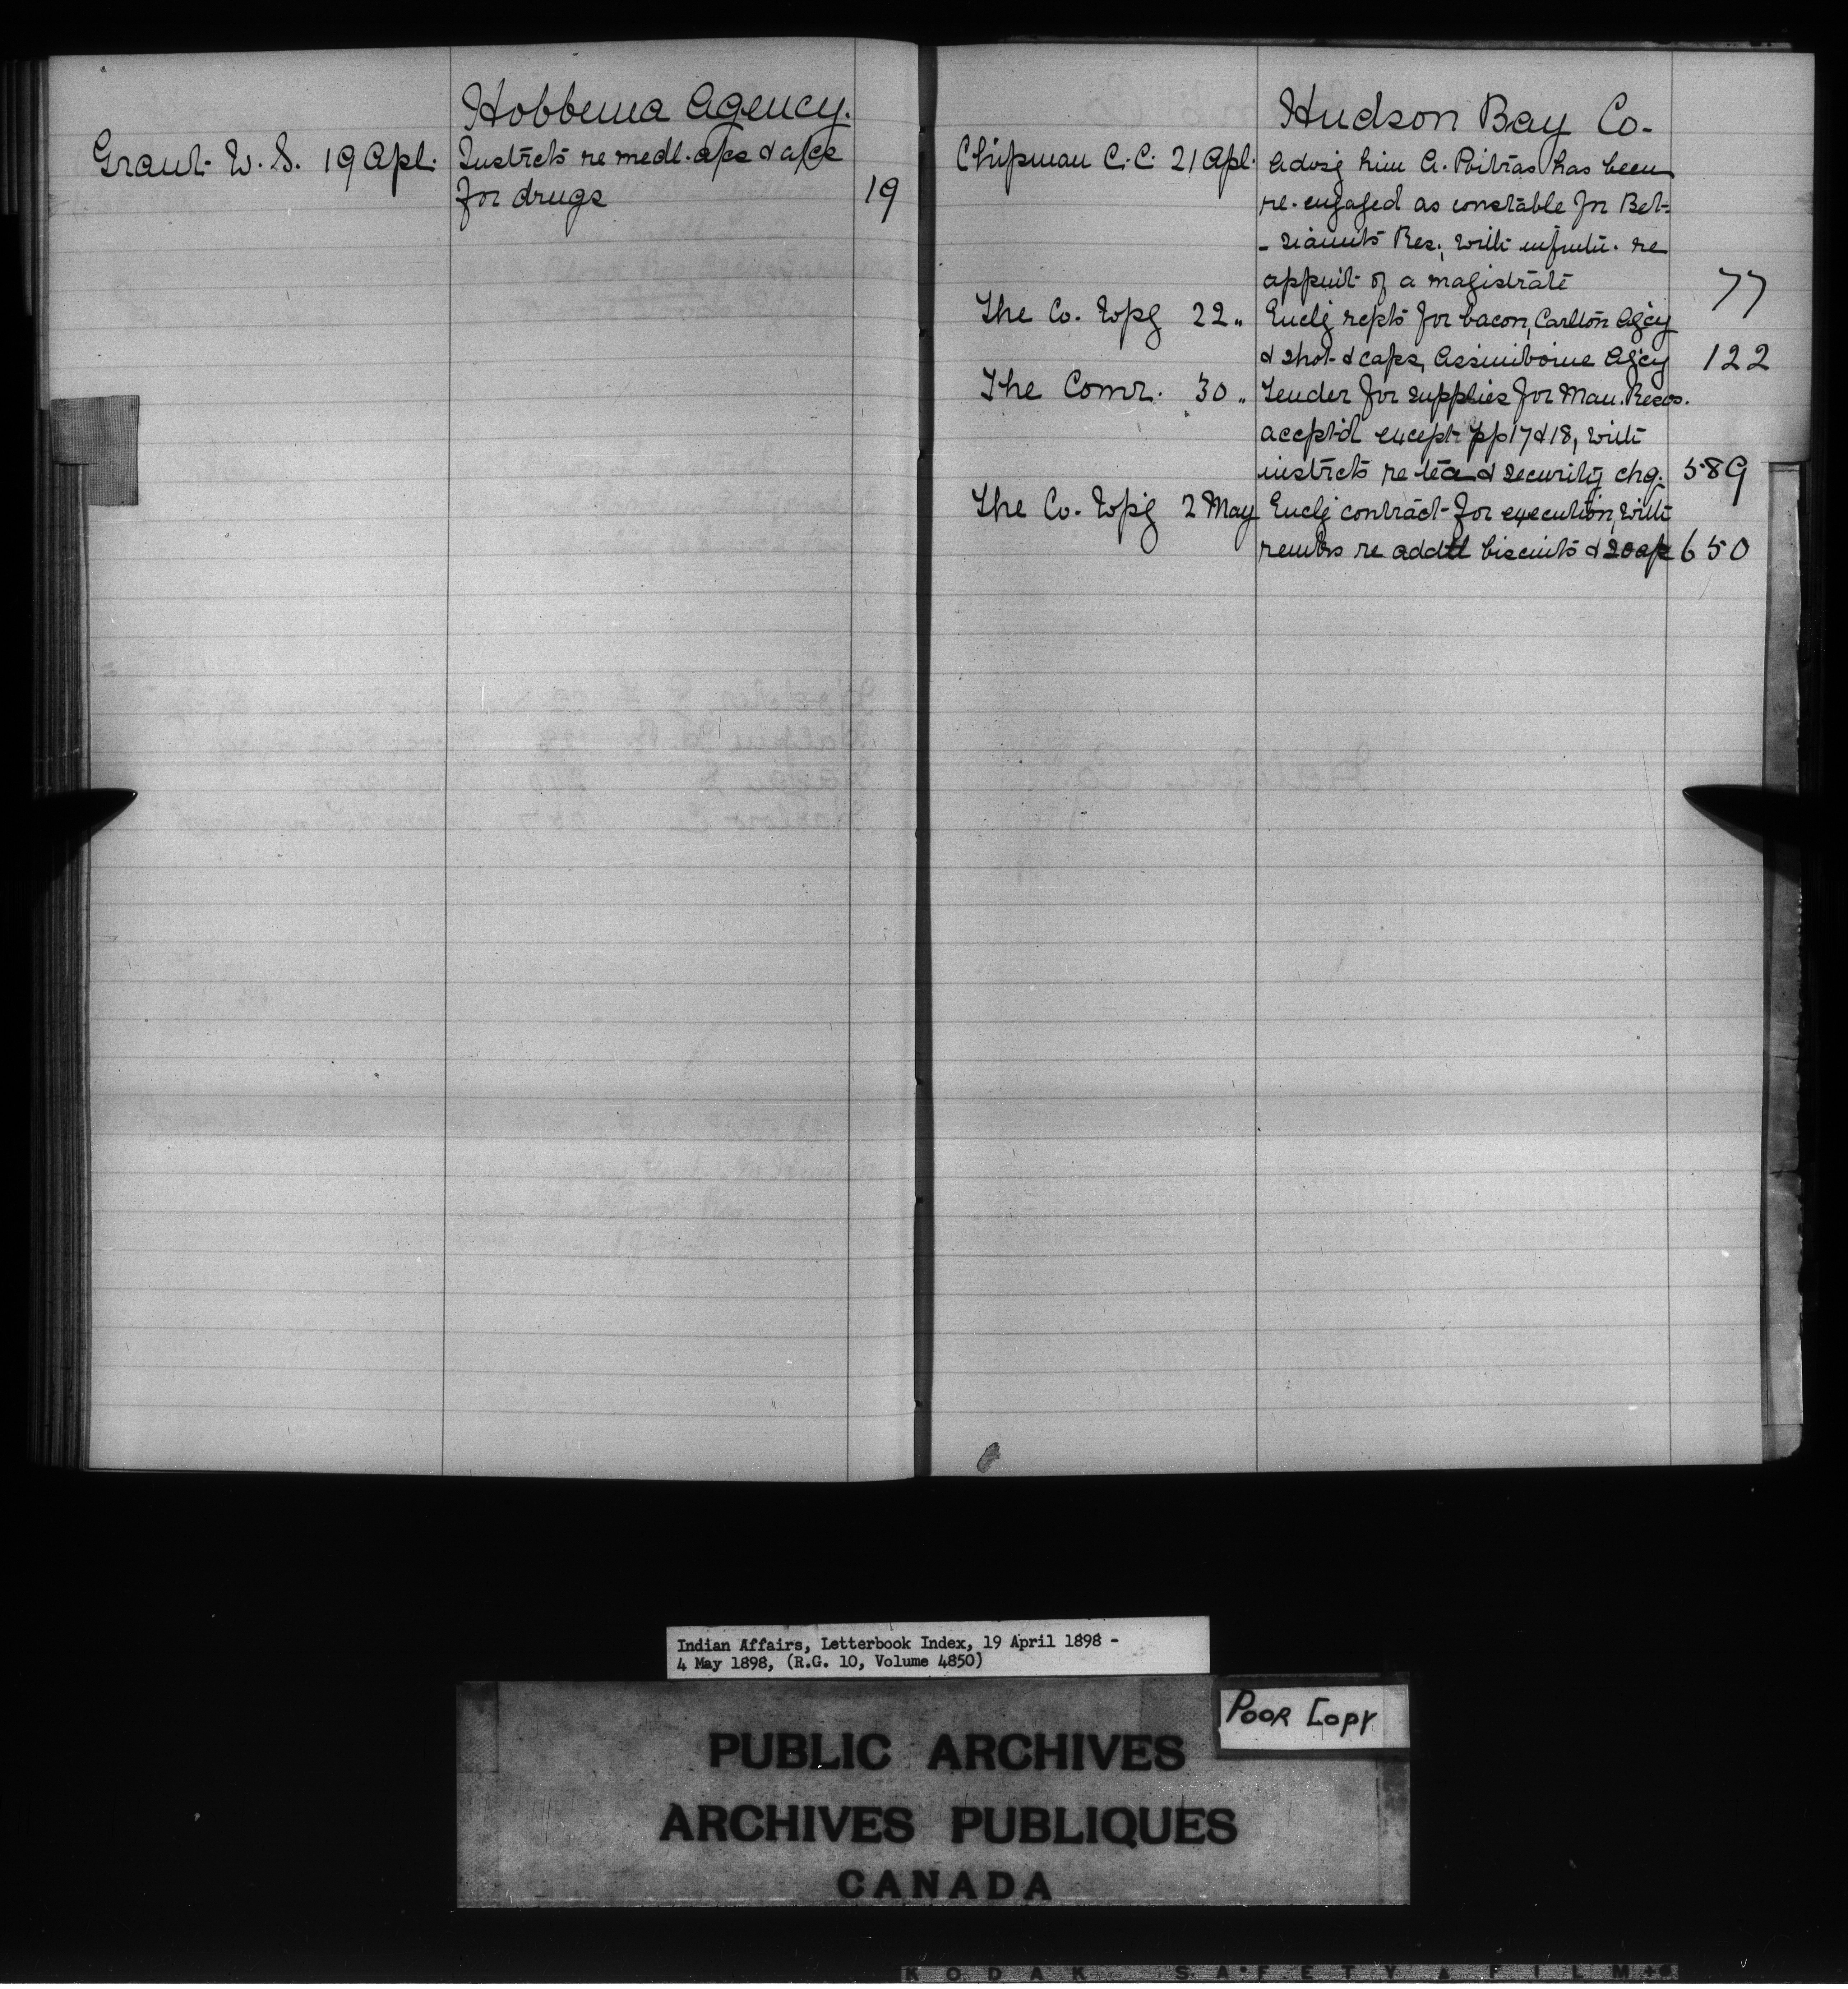 Hobbema Agency.
Grant W. S. 19 Apl. Instrcts re medl. a/cs & a/cs
for drugs 19
Hudson Bay Co.
Chipman C. C. 21 Apl. Advsg him A. Poitras has been
re-engaged as constable for Bet-
-siamits Res., with infmtn. re
appmt of a magistrate 77
The Co. Wpg 22 " Enclg repts for bacon, Carlton Agcy
& shot & caps, Assiniboine Agcy 122
The Comr. 30 " Tender for supplies for Man. Resvs.
accept'd except pp 17 & 18, with
instrcts re tea & security chq. 589
The Co. Wpg 2 May Enclg contract for execution, with
remks re addtl biscuits & soap 650
Indian Affairs, Letterbook Index, 19 April 1898 -
4 May 1898, (R.G. 10, Volume 4850)
POOR COPY
PUBLIC ARCHIVES
ARCHIVES PUBLIQUES
CANADA
KODAK SAFETY FILM